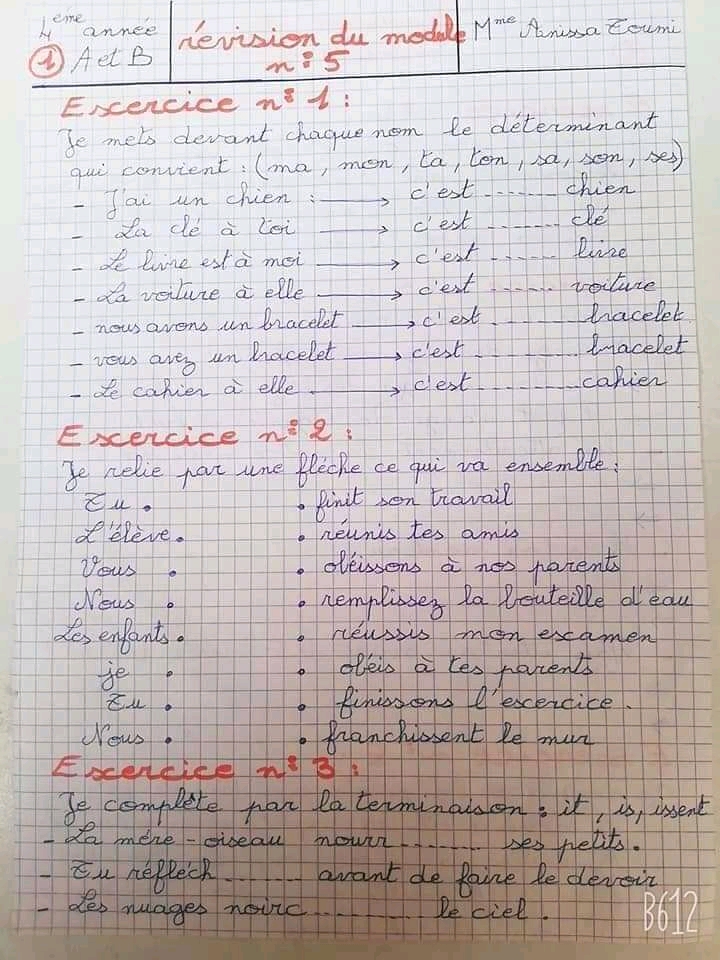 4eme année
1 A et B
révision du module
n° 5
Mme Anissa Toumi
Excercice n° 1 :
Je mets devant chaque nom le déterminant
qui convient : (ma, mon, ta, ton, sa, son, ses)
- J'ai un chien : → c'est ....... chien
- La clé à toi → c'est ....... clé
- Le livre est à moi → c'est ....... livre
- La voiture à elle → c'est ....... voiture
- nous avons un bracelet → c'est ....... bracelet
- vous avez un bracelet → c'est ....... bracelet
- Le cahier à elle → c'est ....... cahier
Excercice n° 2 :
Je relie par une fléche ce qui va ensemble :
Tu . . finit son travail
L'élève. . réunis tes amis
Vous . . obéissons à nos parents
Nous . . remplissez la bouteille d'eau
Les enfants. . réussis mon escamen
je . . obéis à tes parents
Tu . . finissons l'escercice.
Nous . . franchissent le mur
Excercice n° 3 :
Je complète par la terminaison : it, is, issent
- La mére-oiseau nourr ....... ses petits.
- Tu réfléch ....... avant de faire le devoir
- Les nuages noirc ....... le ciel.
B612